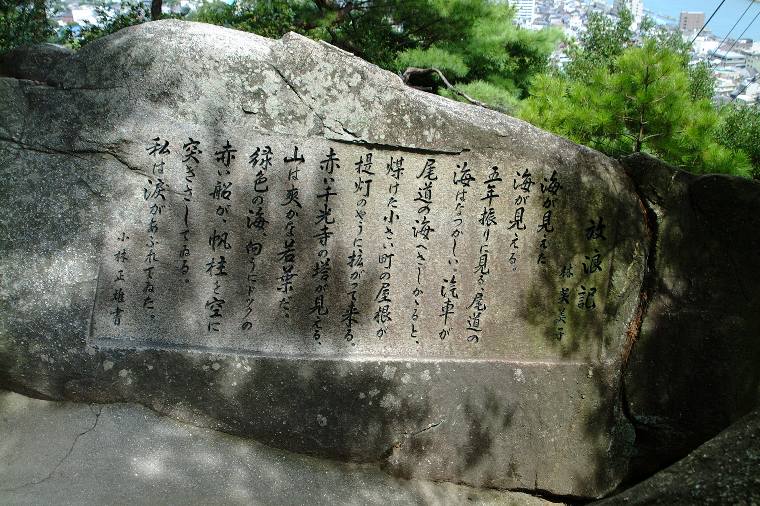 放浪記
林芙美子
海が見えた
海が見える。
五年振りに見る、尾道の
海はなつかしい、汽車が
尾道の海へさしかゝると、
煤けた小さい町の屋根が
提灯のやうに拡がって来る。
赤い千光寺の塔が見える、
山は爽かな若葉だ。
緑色の海、向うにドックの
赤い船が、帆柱を空に
突きさしてゐる。
私は涙があふれてゐた。
小林正雄書